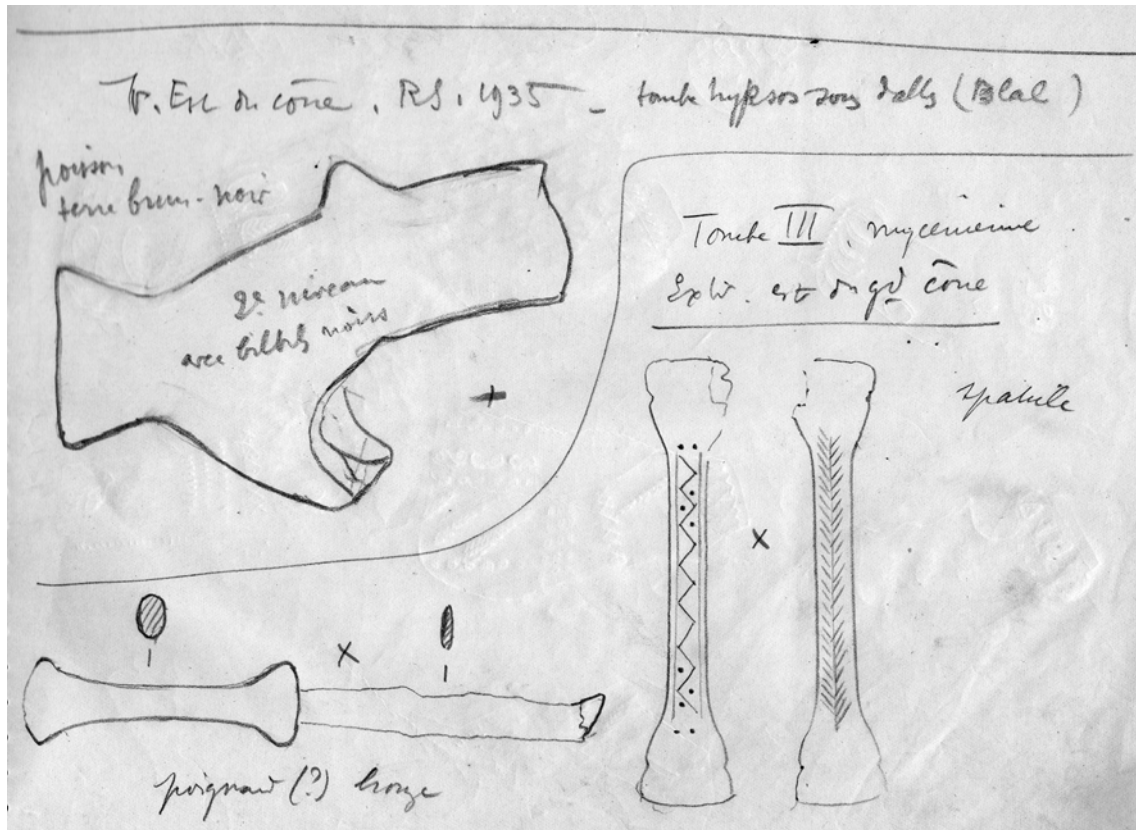 Tr. Est du cône, RS, 1935 – tombe hyksos sous dalles (Blal)
poisson,
terre brun-noir
2e niveau
avec bilbils noirs
Tombe III, mycénienne
est du gd cône
spatule
poignard (?) bronze